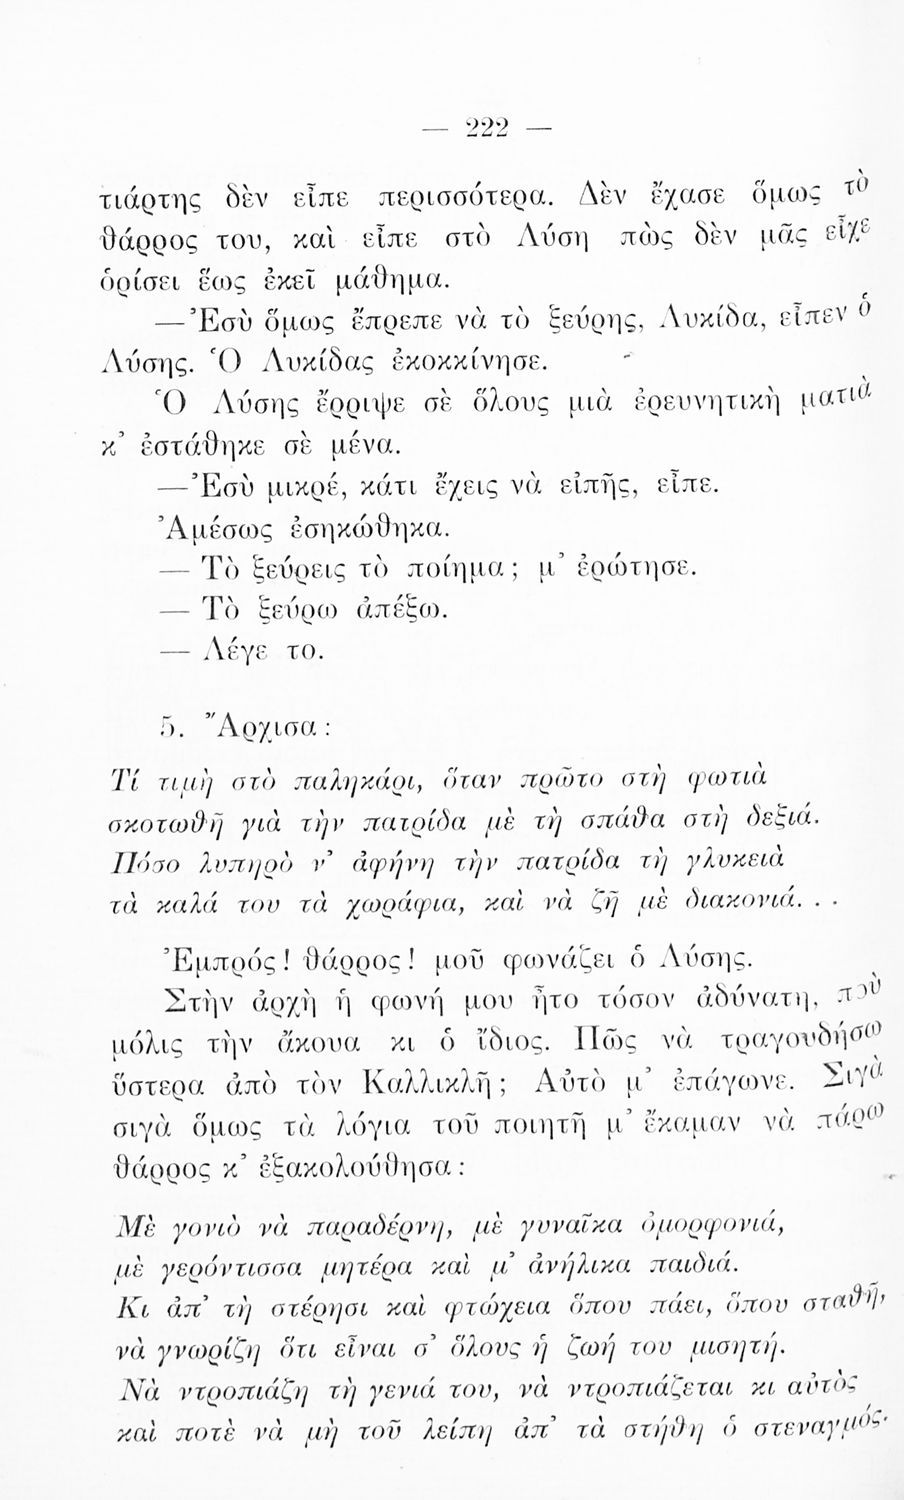 — 222 —
τιάρτης δὲν εἶπε περισσότερα. Δὲν ἔχασε ὅμως τὸ
θάρρος του, καὶ εἶπε στὸ Λύση πὼς δὲν μᾶς εἶχε
ὁρίσει ἕως ἐκεῖ μάθημα.
— Ἐσὺ ὅμως ἔπρεπε νὰ τὸ ξεύρης, Λυκίδα, εἶπεν ὁ
Λύσης. Ὁ Λυκίδας ἐκοκκίνησε.
Ὁ Λύσης ἔρριψε σὲ ὅλους μιὰ ἐρευνητικὴ ματιὰ
κ’ ἐστάθηκε σὲ μένα.
— Ἐσὺ μικρέ, κάτι ἔχεις νὰ εἰπῆς, εἶπε.
Ἀμέσως ἐσηκώθηκα.
— Τὸ ξεύρεις τὸ ποίημα; μ’ ἐρώτησε.
— Τὸ ξεύρω ἀπέξω.
— Λέγε το.
5. Ἄρχισα:
Τί τιμὴ στὸ παληκάρι, ὅταν πρῶτο στὴ φωτιὰ
σκοτωθῆ γιὰ τὴν πατρίδα μὲ τὴ σπάθα στὴ δεξιά.
Πόσο λυπηρὸ ν’ ἀφήνη τὴν πατρίδα τὴ γλυκειὰ
τὰ καλά του τὰ χωράφια, καὶ νὰ ζῆ μὲ διακονιά. . .
Ἐμπρός! θάρρος! μοῦ φωνάζει ὁ Λύσης.
Στὴν ἀρχὴ ἡ φωνή μου ἦτο τόσον ἀδύνατη, ποὺ
μόλις τὴν ἄκουα κι ὁ ἴδιος. Πῶς νὰ τραγουδήσω
ὕστερα ἀπὸ τὸν Καλλικλῆ; Αὐτὸ μ’ ἐπάγωνε. Σιγὰ
σιγὰ ὅμως τὰ λόγια τοῦ ποιητῆ μ’ ἔκαμαν νὰ πάρω
θάρρος κ’ ἐξακολούθησα:
Μὲ γονιὸ νὰ παραδέρνη, μὲ γυναῖκα ὀμορφονιά,
μὲ γερόντισσα μητέρα καὶ μ’ ἀνήλικα παιδιά.
Κι ἀπ’ τὴ στέρησι καὶ φτώχεια ὅπου πάει, ὅπου σταθῆ,
νὰ γνωρίζη ὅτι εἶναι σ’ ὅλους ἡ ζωή του μισητή.
Νὰ ντροπιάζη τὴ γενιά του, νὰ ντροπιάζεται κι αὐτὸς
καὶ ποτὲ νὰ μὴ τοῦ λείπη ἀπ’ τὰ στήθη ὁ στεναγμός.